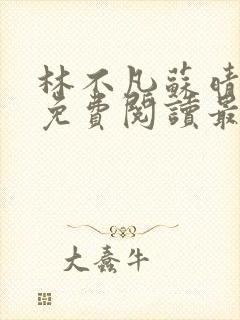 林不凡蘇晴
免費閱讀最
大蠢牛